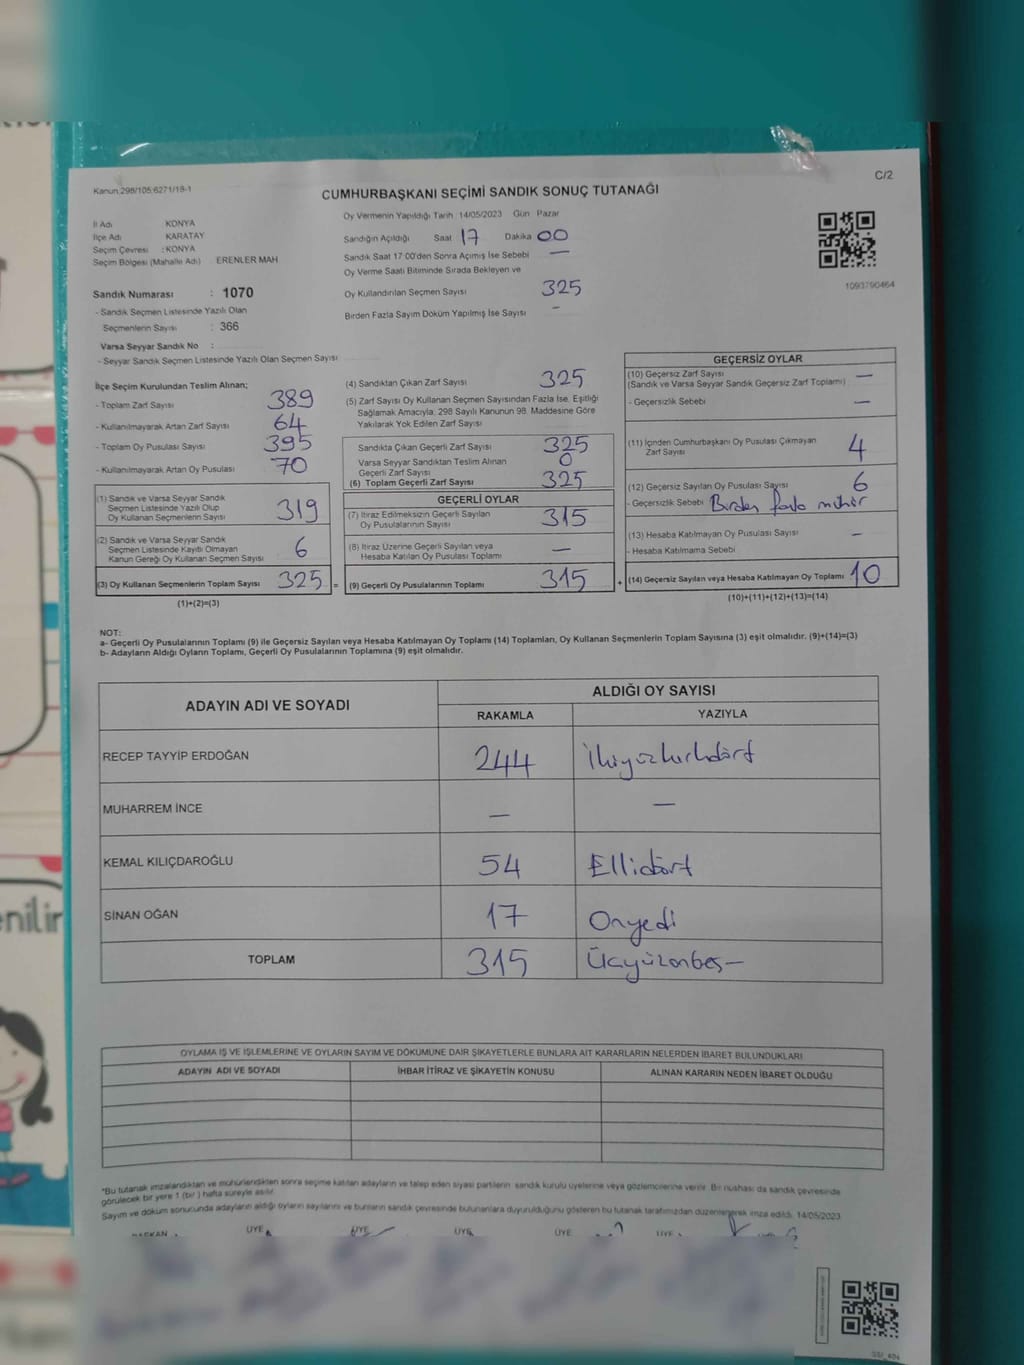 C/2
Kanun:298/105:6271/18-1
CUMHURBAŞKANI SEÇİMİ SANDIK SONUÇ TUTANAĞI
İl Adı : KONYA
İlçe Adı : KARATAY
Seçim Çevresi : KONYA
Seçim Bölgesi (Mahalle Adı) ERENLER MAH
Sandık Numarası : 1070
- Sandık Seçmen Listesinde Yazılı Olan
Seçmenlerin Sayısı : 366
Varsa Seyyar Sandık No :
- Seyyar Sandık Seçmen Listesinde Yazılı Olan Seçmen Sayısı
Oy Vermenin Yapıldığı Tarih 14/05/2023 Gün Pazar
Sandığın Açıldığı Saat 17 Dakika 00
Sandık Saat 17:00'den Sonra Açımış İse Sebebi —
Oy Verme Saati Bitiminde Sırada Bekleyen ve
Oy Kullandırılan Seçmen Sayısı 325
Birden Fazla Sayım Döküm Yapılmış İse Sayısı –
1093790464
İlçe Seçim Kurulundan Teslim Alınan;
- Toplam Zarf Sayısı 389
- Kullanılmayarak Artan Zarf Sayısı 64
- Toplam Oy Pusulası Sayısı 395
- Kullanılmayarak Artan Oy Pusulası 70
(1) Sandık ve Varsa Seyyar Sandık
Seçmen Listesinde Yazılı Olup
Oy Kullanan Seçmenlerin Sayısı 319
(2) Sandık ve Varsa Seyyar Sandık
Seçmen Listesinde Kayıtlı Olmayan
Kanun Gereği Oy Kullanan Seçmen Sayısı 6
(3) Oy Kullanan Seçmenlerin Toplam Sayısı 325 =
(1)+(2)=(3)
(4) Sandıktan Çıkan Zarf Sayısı 325
(5) Zarf Sayısı Oy Kullanan Seçmen Sayısından Fazla İse, Eşitliği
Sağlamak Amacıyla, 298 Sayılı Kanunun 98. Maddesine Göre
Yakılarak Yok Edilen Zarf Sayısı
Sandıkta Çıkan Geçerli Zarf Sayısı 325
Varsa Seyyar Sandıktan Teslim Alınan
Geçerli Zarf Sayısı 0
(6) Toplam Geçerli Zarf Sayısı 325
GEÇERLİ OYLAR
(7) İtiraz Edilmeksizin Geçerli Sayılan
Oy Pusulalarının Sayısı 315
(8) İtiraz Üzerine Geçerli Sayılan veya
Hesaba Katılan Oy Pusulası Toplamı —
(9) Geçerli Oy Pusulalarının Toplamı 315 +
GEÇERSİZ OYLAR
(10) Geçersiz Zarf Sayısı —
(Sandık ve Varsa Seyyar Sandık Geçersiz Zarf Toplamı)
- Geçersizlik Sebebi —
(11) İçinden Cumhurbaşkanı Oy Pusulası Çıkmayan
Zarf Sayısı 4
(12) Geçersiz Sayılan Oy Pusulası Sayısı 6
- Geçersizlik Sebebi Birden fazla mühür
(13) Hesaba Katılmayan Oy Pusulası Sayısı –
- Hesaba Katılmama Sebebi
(14) Geçersiz Sayılan veya Hesaba Katılmayan Oy Toplamı 10
(10)+(11)+(12)+(13)=(14)
NOT:
a- Geçerli Oy Pusulalarının Toplamı (9) ile Geçersiz Sayılan veya Hesaba Katılmayan Oy Toplamı (14) Toplamları, Oy Kullanan Seçmenlerin Toplam Sayısına (3) eşit olmalıdır. (9)+(14)=(3)
b- Adayların Aldığı Oyların Toplamı, Geçerli Oy Pusulalarının Toplamına (9) eşit olmalıdır.
ADAYIN ADI VE SOYADI
ALDIĞI OY SAYISI
RAKAMLA YAZIYLA
RECEP TAYYİP ERDOĞAN 244 İkiyüzkırkdört
MUHARREM İNCE — —
KEMAL KILIÇDAROĞLU 54 Ellidört
SİNAN OĞAN 17 Onyedi
TOPLAM 315 Üçyüzonbeş—
OYLAMA İŞ VE İŞLEMLERİNE VE OYLARIN SAYIM VE DÖKÜMÜNE DAİR ŞİKAYETLERLE BUNLARA AİT KARARLARIN NELERDEN İBARET BULUNDUKLARI
ADAYIN ADI VE SOYADI İHBAR İTİRAZ VE ŞİKAYETİN KONUSU ALINAN KARARIN NEDEN İBARET OLDUĞU
*Bu tutanak imzalandıktan ve mühürlendikten sonra seçime katılan adayların ve talep eden siyasi partilerin sandık kurulu üyelerine veya gözlemcilerine verilir. Bir nüshası da sandık çevresinde
görülecek bir yere 1 (bir) hafta süreyle asılır.
Sayım ve döküm sonucunda adayların aldığı oyların sayılarını ve bunların sandık çevresinde bulunanlara duyurulduğunu gösteren bu tutanak tarafımızdan düzenlenerek imza edildi. 14/05/2023
BAŞKAN ÜYE ÜYE ÜYE ÜYE ÜYE
enilir